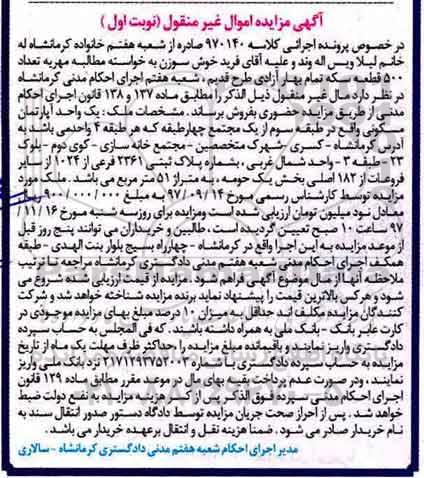 آگهی مزایده اموال غیر منقول (نوبت اول)
در خصوص پرونده اجرائی کلاسه ۹۷۰۱۴۰ صادره از شعبه هفتم خانواده کرمانشاه له
خانم لیلا ویس اله وند و علیه آقای فرید خوش سوزن به خواسته مطالبه مهریه تعداد
۵۰۰ قطعه سکه تمام بهار آزادی طرح قدیم ، شعبه هفتم اجرای احکام مدنی کرمانشاه
در نظر دارد مال غیر منقول ذیل الذکر را مطابق ماده ۱۳۷ و ۱۳۸ قانون اجرای احکام
مدنی از طریق مزایده حضوری بفروش برساند . مشخصات ملک : یک واحد آپارتمان
مسکونی واقع در طبقه سوم از یک مجتمع چهارطبقه که هر طبقه ۴ واحدمی باشد به
آدرس کرمانشاه - کسری -شهرک متخصصین - مجتمع خانه سازی - کوی دوم - بلوک
۲۳ - طبقه ۳ - واحد شمال غربی ، بشماره پلاک ثبتی ۲۳۶۱ فرعی از ۱۰۲۴ از سایر
فروعات از ۱۸۲ اصلی بخش یک حومه ، به متراژ ۵۱ متر مربع می باشد . ملک مورد
مزایده توسط کارشناس رسمی مورخ ۹۷/۰۹/۱۴ به مبلغ ۹۰۰/۰۰۰/۰۰۰ ریال
معادل نود میلیون تومان ارزیابی شده است ومزایده برای روزسه شنبه مورخ ۱۶ /۱۱/
۹۷ ساعت ۱۰ صبح تعیین گردیده است ، طالبین و خریداران می توانند پنج روز قبل
از موعد مزایده به این اجرا واقع در کرمانشاه - چهارراه بسیج بلوار بنت الهدی -طبقه
همکف اجرای احکام مدنی شعبه هفتم مدنی دادگستری کرمانشاه مراجعه تا ترتیب
ملاحظه آنها از مال موضوع آگهی فراهم شود . مزایده از قیمت ارزیابی شده شروع می
شود و هرکس بالاترین قیمت را پیشنهاد نماید برنده مزایده شناخته خواهد شد و شرکت
کنندگان مزایده مکلف اند حداقل به میزان ۱۰ درصد مبلغ بهای مزایده موجودی در
کارت عابر بانک - بانک ملی به همراه داشته باشند . که فی المجلس به حساب سپرده
دادگستری واریز نمایند و باقیمانده مبلغ مزایده را حداکثر ظرف مهلت یک ماه از تاریخ
مزایده به حساب سپرده دادگستری با شماره نزد بانک ملی واریز
نمایند ، ودر صورت عدم پرداخت بقیه بهای مال در موعد مقرر مطابق ماده ۱۲۹ قانون
اجرای احکام مدنی سپرده فوق الذکر پس از کسر هزینه مزایده به نفع دولت ضبط
خواهد شد . پس از احراز صحت جریان مزایده توسط دادگاه دستور صدور انتقال سند به
نام خریدار صادر می شود . ضمنا هزینه نقل و انتقال برعهده خریدار می باشد .
مدیر اجرای احکام شعبه هفتم مدنی دادگستری کرمانشاه -سالاری